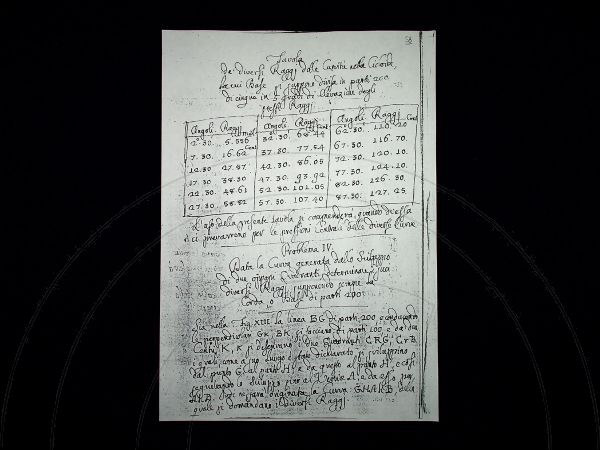 Tavola
de' diversi Raggi della Curvità nella Cicloide,
la cui Base si suppone divisa in parti 200
di cinque in 5 gradi di elevazione degli
stessi Raggi.
Angoli Raggi Angoli Raggi Angoli Raggi
2°.30. 5.556 32.30. 68.44 62°.30. 112.90
7.30. 16.62 37.30. 77.54 67.30. 116.70
12.30. 27.87 42.30. 86.05 72.30. 120.10
17.30 38.30 47.30. 93.92 77.30 124.10
22.30. 48.61 52.30. 101.05 82.30. 126.30
27.30. 58.82 57.30. 107.40 87.30. 127.25
L'uso della presente Tavola si comprenderà, quando di essa
ci prevarremo per le pressioni Centrali delle diverse Curve
Problema IV.
Data la Curva generata dallo Sviluppo
di due opposti Quadranti determinare i suoi
diversi Raggi supponendo sempre la
Corda, o Base di parti 200.
Sia nella Fig. XIII la linea BG di parti 200 e condotte
le perpendicolari GK, BK si facciano di parti 100, e da' due
Centri K, K si descrivino i due Quadranti CRG, CrB
i quali come a suo luogo è stato dichiarato si sviluppino
dal punto G al punto H, e da questo al punto A, e così
seguitando lo Sviluppo sino al Vertice A, e da esso per
A.K.B. sarà originata la Curva GHAKB della
quale si domandano i diversi Raggi.